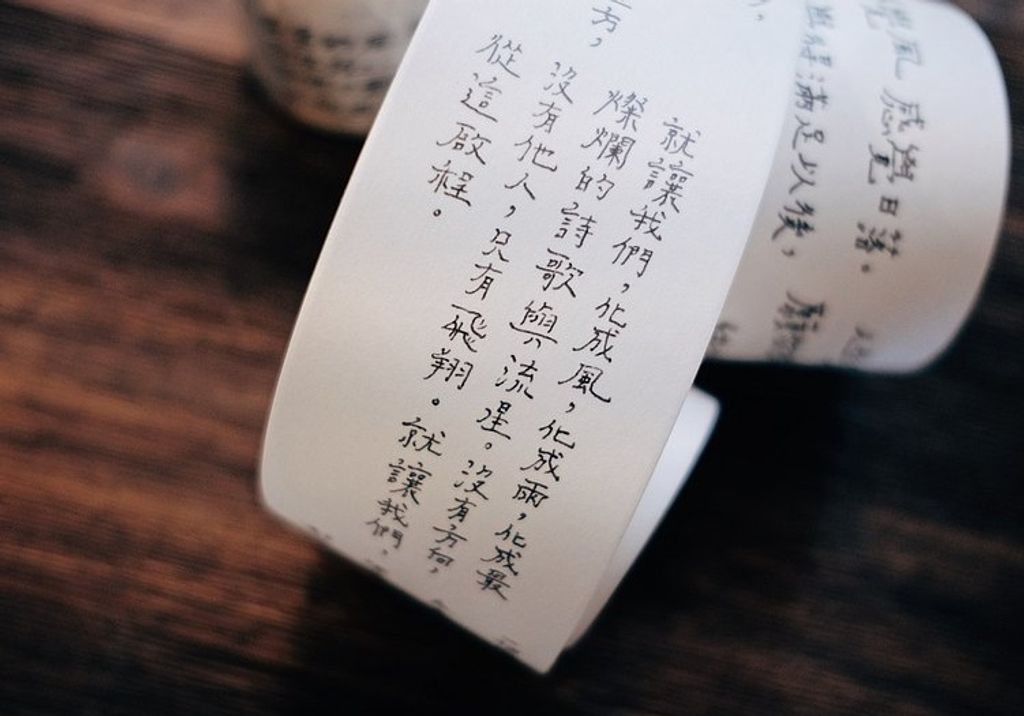 風 感覺日落。
得滿足以後,
方,
就讓我們,化成風,化成雨,化成最
燦爛的詩歌與流星。沒有方向,
沒有他人,只有飛翔。就讓我們,
從這啟程。